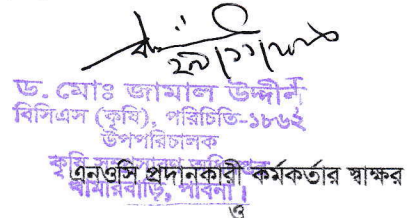 ড. মোঃ জামাল উদ্দীন
বিসিএস (কৃষি), পরিচিতি-১৮৬২
উপপরিচালক
কৃষি সম্প্রসারণ অধিদপ্তর
খামারবাড়ি, পাবনা।
এনওসি প্রদানকারী কর্মকর্তার স্বাক্ষর
ও